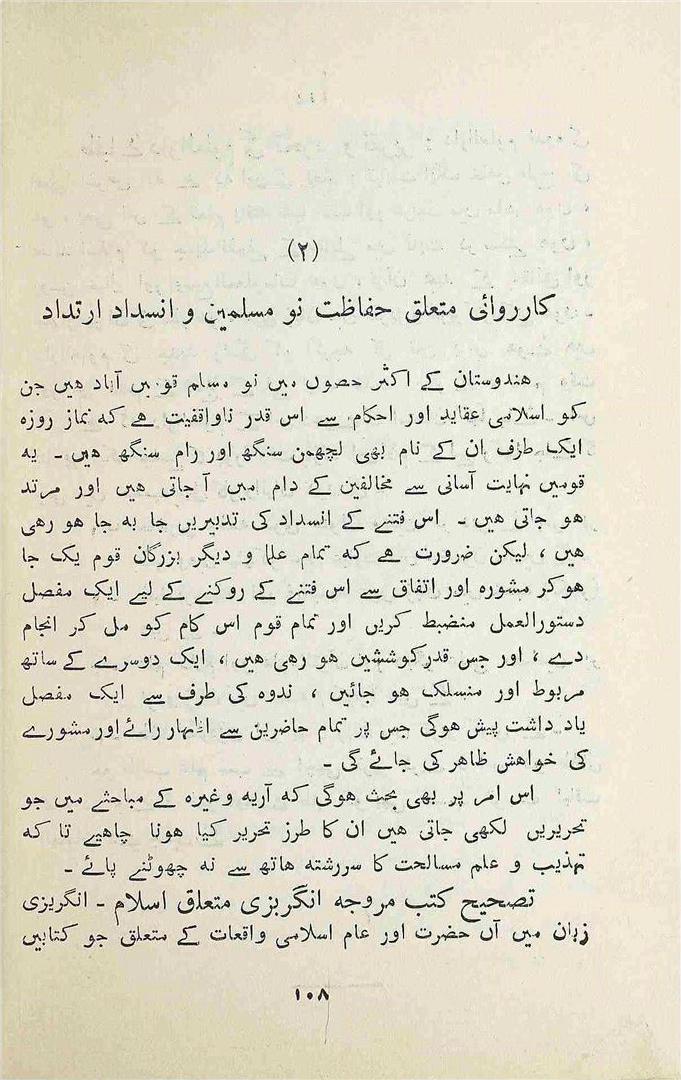 (۲)
کارروائی متعلق حفاظت نو مسلمین و انسداد ارتداد
ہندوستان کے اکثر حصوں میں نو مسلم قومیں آباد ہیں جن
کو اسلامی عقاید اور احکام سے اس قدر ناواقفیت ہے کہ نماز روزہ
ایک طرف ان کے نام بھی لچھمن سنگھ اور رام سنگھ ہیں ۔ یہ
قومیں نہایت آسانی سے مخالفین کے دام میں آ جاتی ہیں اور مرتد
ہو جاتی ہیں ۔ اس فتنے کے انسداد کی تدبیریں جا بہ جا ہو رہی
ہیں ، لیکن ضرورت ہے کہ تمام علما و دیگر بزرگان قوم یک جا
ہوکر مشورہ اور اتفاق سے اس فتنے کے روکنے کے لیے ایک مفصل
دستورالعمل منضبط کریں اور تمام قوم اس کام کو مل کر انجام
دے ، اور جس قدر کوششیں ہو رہی ہیں ، ایک دوسرے کے ساتھ
مربوط اور منسلک ہو جائیں ، ندوہ کی طرف سے ایک مفصل
یاد داشت پیش ہوگی جس پر تمام حاضرین سے اظہار رائے اور مشورے
کی خواہش ظاہر کی جائے گی ۔
اس امر پر بھی بحث ہوگی کہ آریہ وغیرہ کے مباحثے میں جو
تحریریں لکھی جاتی ہیں ان کا طرز تحریر کیا ہونا چاہیے تا کہ
تہذیب و علم مسالحت کا سررشتہ ہاتھ سے نہ چھوٹنے پائے ۔
تصحیح کتب مروجہ انگریزی متعلق اسلام ۔ انگریزی
زبان میں آں حضرت اور عام اسلامی واقعات کے متعلق جو کتابیں
۱۰۸